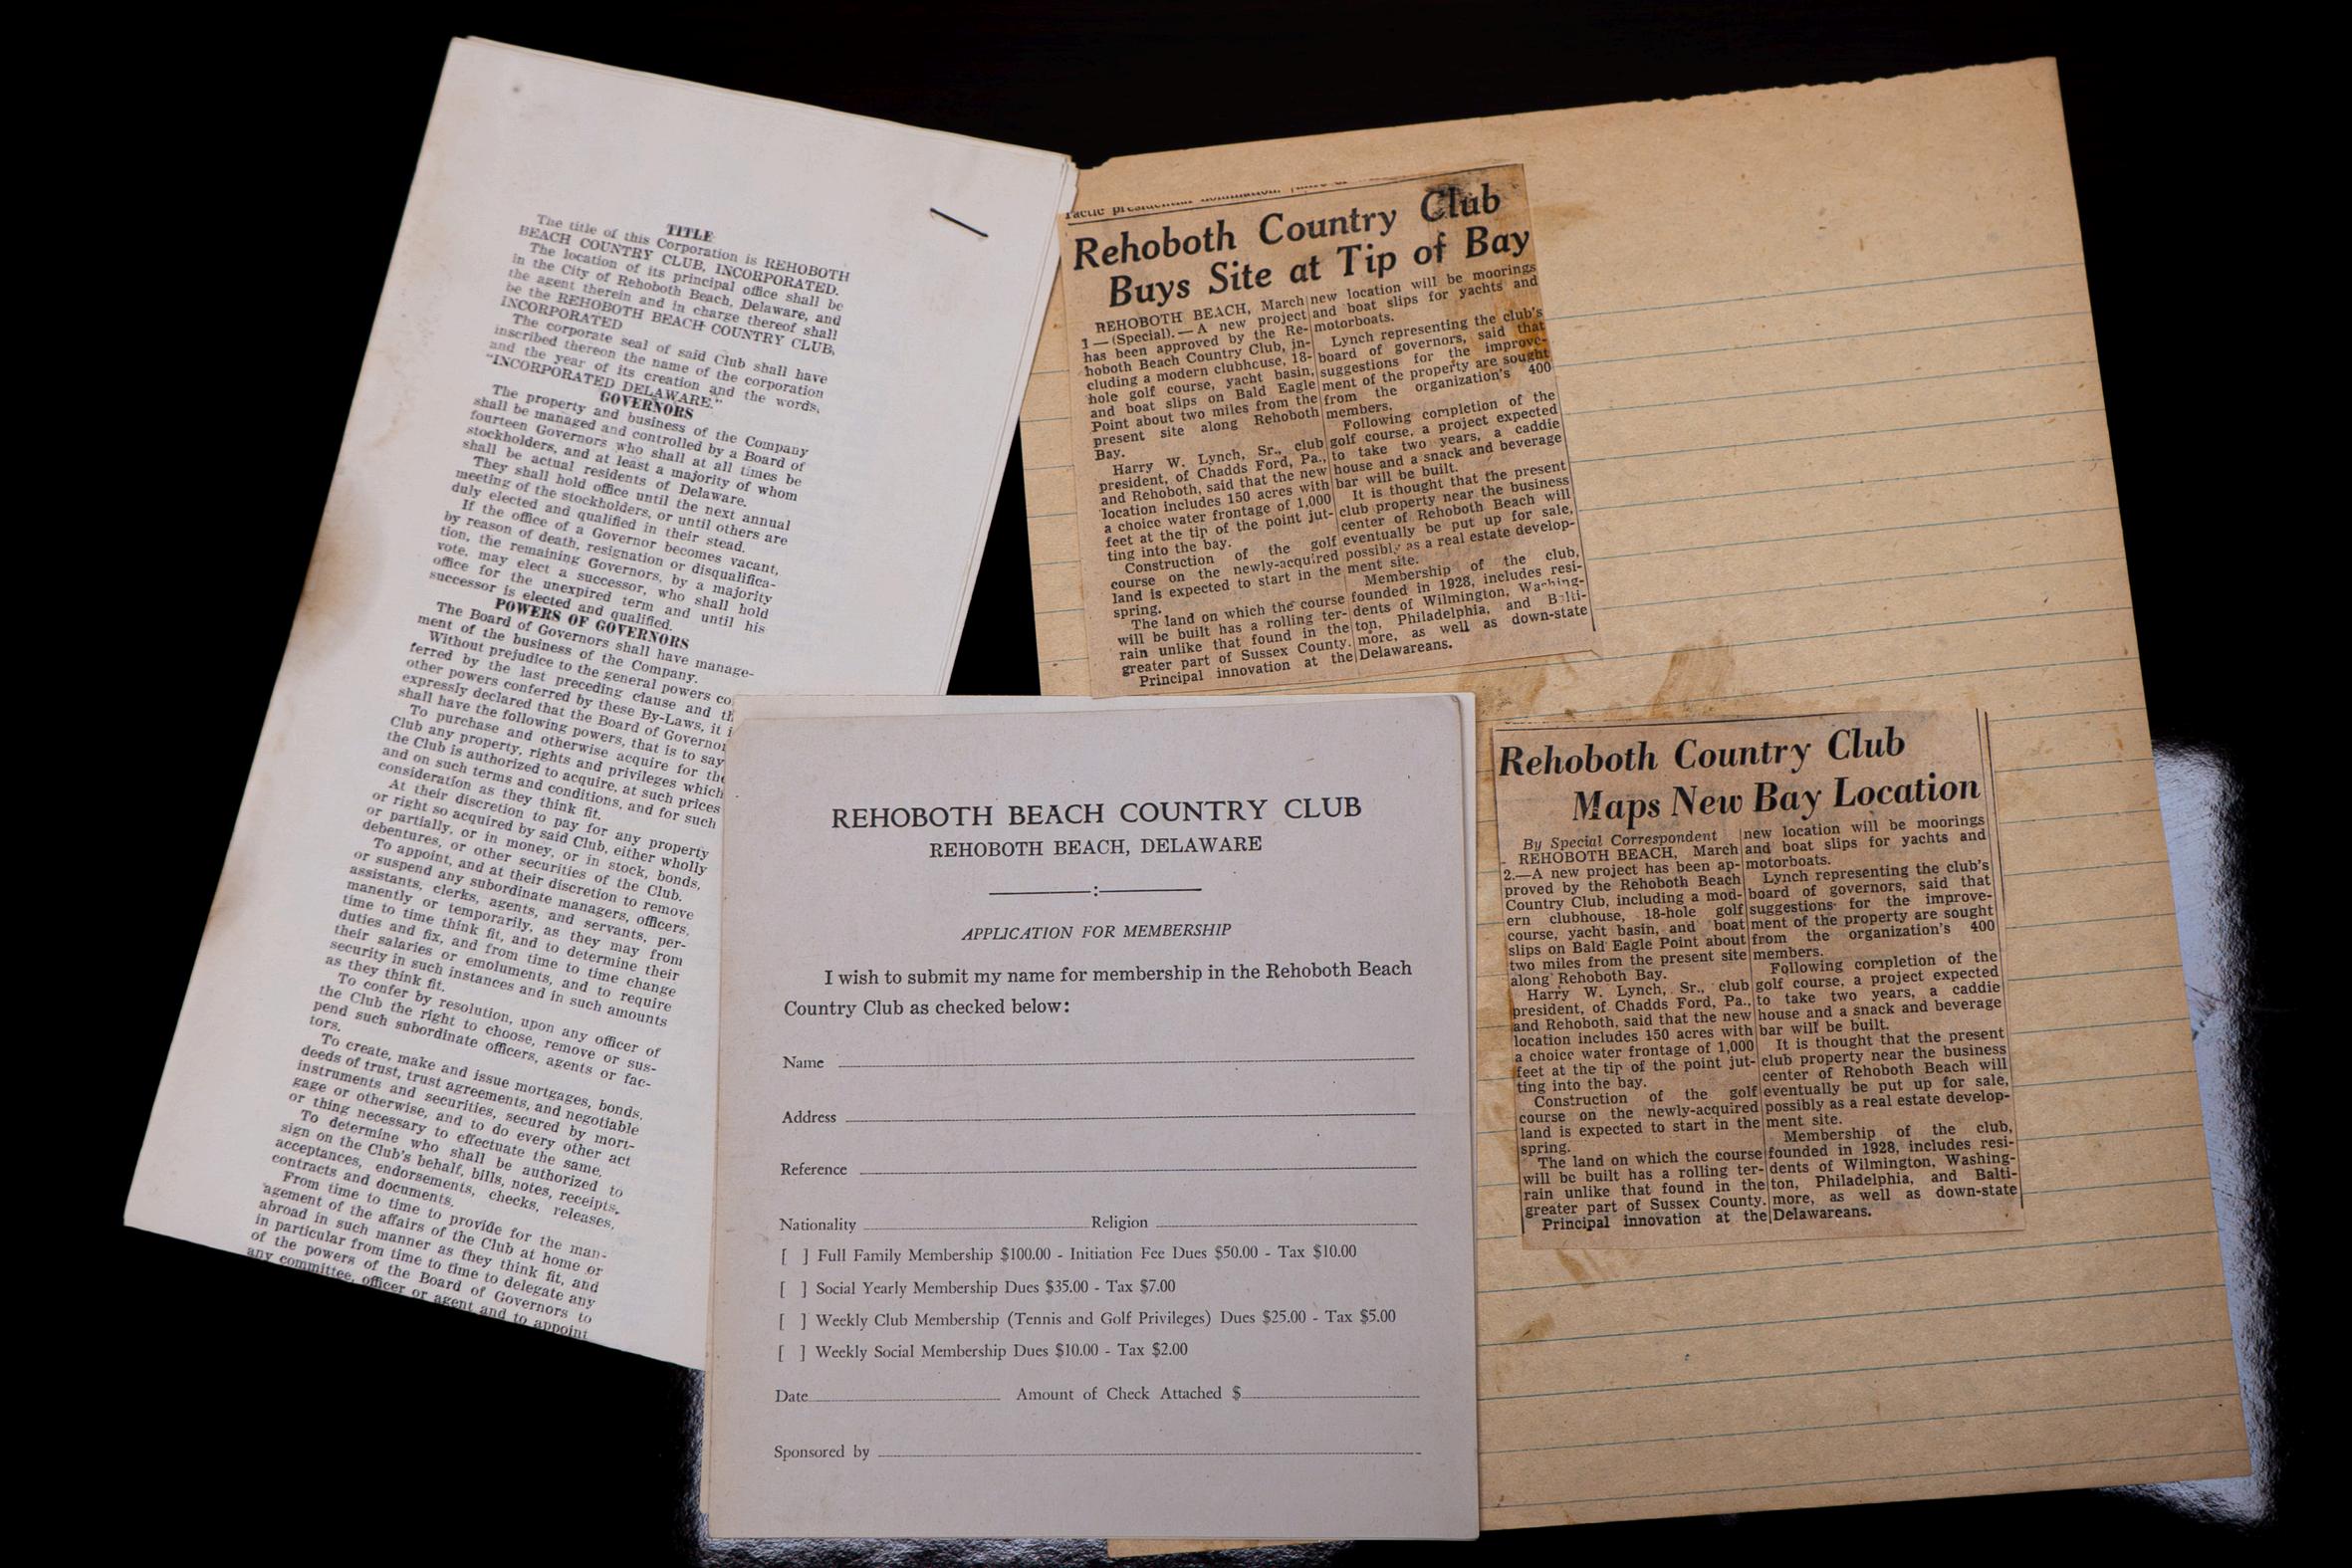 TITLE
The title of this Corporation is REHOBOTH
BEACH COUNTRY CLUB, INCORPORATED.
The location of its principal office shall be
in the City of Rehoboth Beach, Delaware, and
the agent therein and in charge thereof shall
be the REHOBOTH BEACH COUNTRY CLUB,
INCORPORATED
The corporate seal of said Club shall have
inscribed thereon the name of the corporation
and the year of its creation and the words,
"INCORPORATED DELAWARE."
GOVERNORS
The property and business of the Company
shall be managed and controlled by a Board of
fourteen Governors who shall at all times be
stockholders, and at least a majority of whom
shall be actual residents of Delaware.
They shall hold office until the next annual
meeting of the stockholders, or until others are
duly elected and qualified in their stead.
If the office of a Governor becomes vacant,
by reason of death, resignation or disqualifica-
tion, the remaining Governors, by a majority
vote, may elect a successor, who shall hold
office for the unexpired term and until his
successor is elected and qualified.
POWERS OF GOVERNORS
The Board of Governors shall have manage-
ment of the business of the Company.
Without prejudice to the general powers co
ferred by the last preceding clause and th
other powers conferred by these By-Laws, it i
expressly declared that the Board of Governor
shall have the following powers, that is to say
To purchase and otherwise acquire for the
Club any property, rights and privileges which
the Club is authorized to acquire, at such prices
and on such terms and conditions, and for such
consideration as they think fit.
At their discretion to pay for any property
or right so acquired by said Club, either wholly
or partially, or in money, or in stock, bonds,
debentures, or other securities of the Club.
To appoint, and at their discretion to remove
or suspend any subordinate managers, officers,
assistants, clerks, agents, and servants, per-
manently or temporarily, as they may from
time to time think fit, and to determine their
duties and fix, and from time to time change
their salaries or emoluments, and to require
security in such instances and in such amounts
as they think fit.
To confer by resolution, upon any officer of
the Club the right to choose, remove or sus-
pend such subordinate officers, agents or fac-
tors.
To create, make and issue mortgages, bonds,
deeds of trust, trust agreements, and negotiable
instruments and securities, secured by mort-
gage or otherwise, and to do every other act
or thing necessary to effectuate the same.
To determine who shall be authorized to
sign on the Club's behalf, bills, notes, receipts,
acceptances, endorsements, checks, releases,
contracts and documents.
From time to time to provide for the man-
agement of the affairs of the Club at home or
abroad in such manner as they think fit, and
in particular from time to time to delegate any
of the powers of the Board of Governors to
any committee, officer or agent and to appoint
Rehoboth Country Club
Buys Site at Tip of Bay
REHOBOTH BEACH, March
1 — (Special). — A new project
has been approved by the Re-
hoboth Beach Country Club, in-
cluding a modern clubhouse, 18-
hole golf course, yacht basin,
and boat slips on Bald Eagle
Point about two miles from the
present site along Rehoboth
Bay.
Harry W. Lynch, Sr., club
president, of Chadds Ford, Pa.,
and Rehoboth, said that the new
location includes 150 acres with
a choice water frontage of 1,000
feet at the tip of the point jut-
ting into the bay.
Construction of the golf
course on the newly-acquired
land is expected to start in the
spring.
The land on which the course
will be built has a rolling ter-
rain unlike that found in the
greater part of Sussex County.
Principal innovation at the
new location will be moorings
and boat slips for yachts and
motorboats.
Lynch representing the club's
board of governors, said that
suggestions for the improve-
ment of the property are sought
from the organization's 400
members.
Following completion of the
golf course, a project expected
to take two years, a caddie
house and a snack and beverage
bar will be built.
It is thought that the present
club property near the business
center of Rehoboth Beach will
eventually be put up for sale,
possibly as a real estate develop-
ment site.
Membership of the club,
founded in 1928, includes resi-
dents of Wilmington, Washing-
ton, Philadelphia, and Balti-
more, as well as down-state
Delawareans.
Rehoboth Country Club
Maps New Bay Location
By Special Correspondent
REHOBOTH BEACH, March
2.—A new project has been ap-
proved by the Rehoboth Beach
Country Club, including a mod-
ern clubhouse, 18-hole golf
course, yacht basin, and boat
slips on Bald Eagle Point about
two miles from the present site
along Rehoboth Bay.
Harry W. Lynch, Sr., club
president, of Chadds Ford, Pa.,
and Rehoboth, said that the new
location includes 150 acres with
a choice water frontage of 1,000
feet at the tip of the point jut-
ting into the bay.
Construction of the golf
course on the newly-acquired
land is expected to start in the
spring.
The land on which the course
will be built has a rolling ter-
rain unlike that found in the
greater part of Sussex County.
Principal innovation at the
new location will be moorings
and boat slips for yachts and
motorboats.
Lynch representing the club's
board of governors, said that
suggestions for the improve-
ment of the property are sought
from the organization's 400
members.
Following completion of the
golf course, a project expected
to take two years, a caddie
house and a snack and beverage
bar will be built.
It is thought that the present
club property near the business
center of Rehoboth Beach will
eventually be put up for sale,
possibly as a real estate develop-
ment site.
Membership of the club,
founded in 1928, includes resi-
dents of Wilmington, Washing-
ton, Philadelphia, and Balti-
more, as well as down-state
Delawareans.
REHOBOTH BEACH COUNTRY CLUB
REHOBOTH BEACH, DELAWARE
APPLICATION FOR MEMBERSHIP
I wish to submit my name for membership in the Rehoboth Beach
Country Club as checked below:
Name
Address
Reference
Nationality Religion
[ ] Full Family Membership $100.00 - Initiation Fee Dues $50.00 - Tax $10.00
[ ] Social Yearly Membership Dues $35.00 - Tax $7.00
[ ] Weekly Club Membership (Tennis and Golf Privileges) Dues $25.00 - Tax $5.00
[ ] Weekly Social Membership Dues $10.00 - Tax $2.00
Date Amount of Check Attached $
Sponsored by